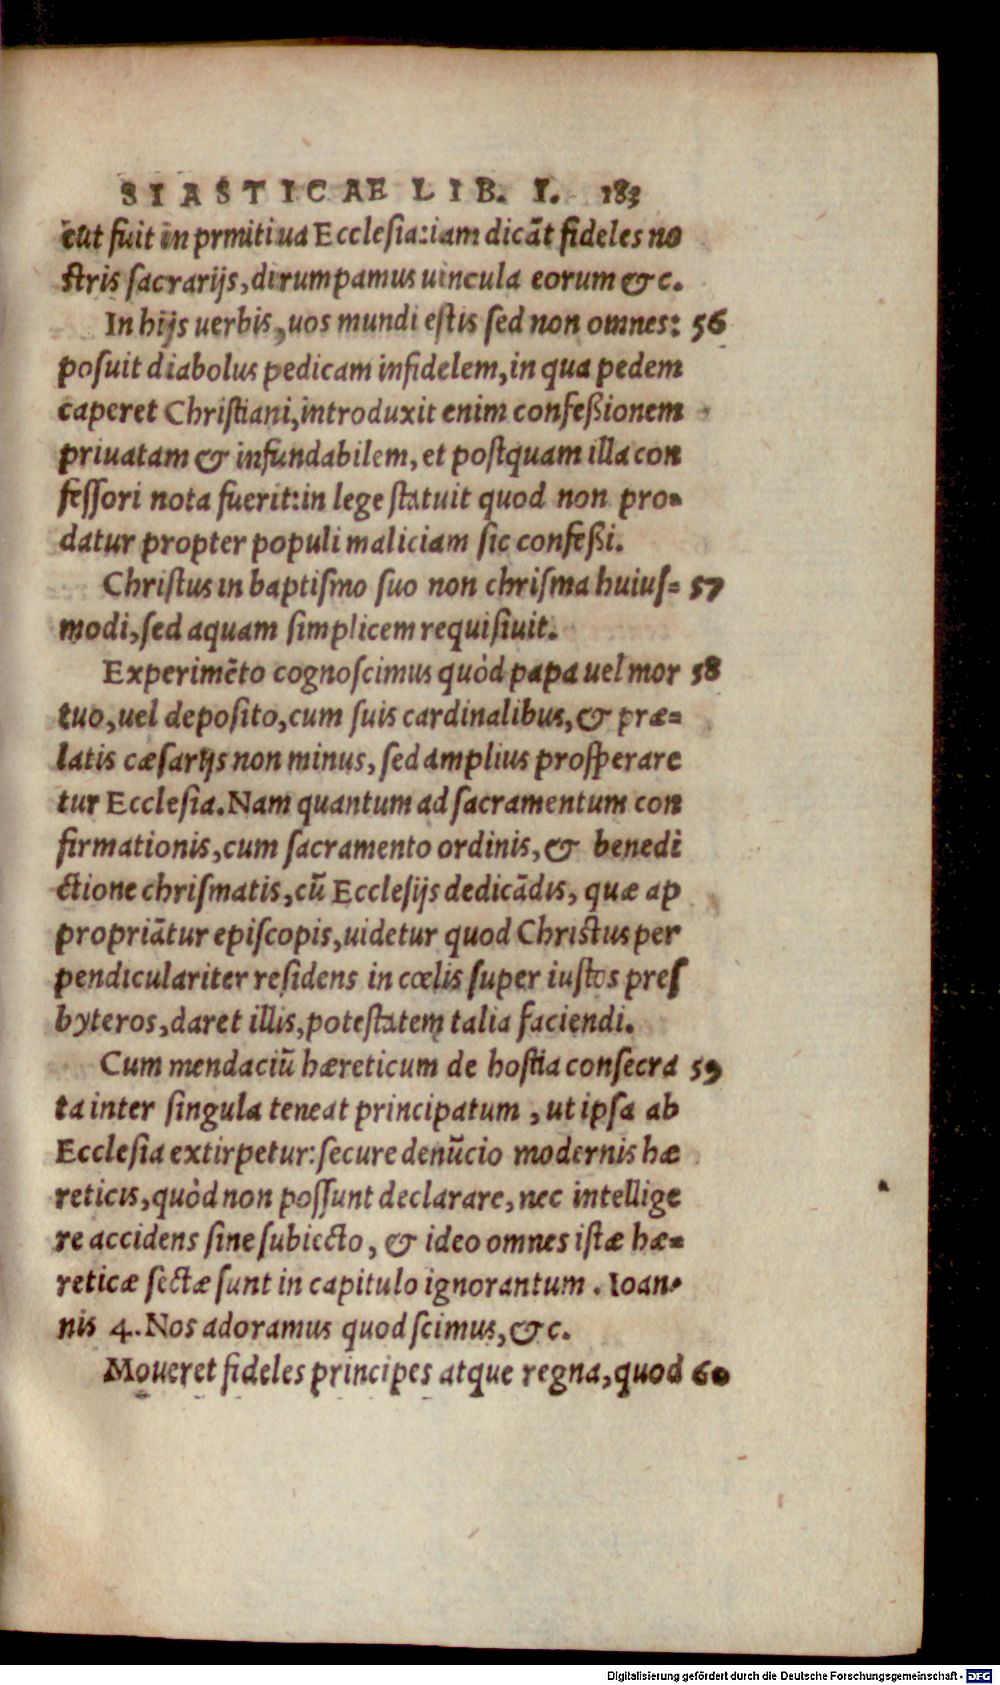 SIASTICAE LIB. I. 183
cut fuit in prmitiua Ecclesia: iam dicāt fideles no
stris sacrarijs, dirumpamus uincula eorum &c.
In hijs uerbis, uos mundi estis sed non omnes: 56
posuit diabolus pedicam infidelem, in qua pedem
caperet Christiani, introduxit enim confeßionem
priuatam & infundabilem, et postquam illa con
fessori nota fuerit: in lege statuit quod non pro=
datur propter populi maliciam sic confeßi.
Christus in baptismo suo non chrisma huius= 57
modi, sed aquam simplicem requisiuit.
Experimēto cognoscimus quòd papa uel mor 58
tuo, uel deposito, cum suis cardinalibus, & præ=
latis cæsarijs non minus, sed amplius prosperare
tur Ecclesia. Nam quantum ad sacramentum con
firmationis, cum sacramento ordinis, & benedi
ctione chrismatis, cū Ecclesijs dedicādis, quæ ap
propriātur episcopis, uidetur quod Christus per
pendiculariter residens in cœlis super iustos pres
byteros, daret illis, potestatem talia faciendi.
Cum mendaciū hæreticum de hostia consecra 59
ta inter singula teneat principatum, ut ipsa ab
Ecclesia extirpetur: secure denūcio modernis hæ
reticis, quòd non possunt declarare, nec intellige
re accidens sine subiecto, & ideo omnes istæ hæ=
reticæ sectæ sunt in capitulo ignorantum. Ioan=
nis 4. Nos adoramus quod scimus, &c.
Moueret fideles principes atque regna, quod 60
Digitalisierung gefördert durch die Deutsche Forschungsgemeinschaft - DFG